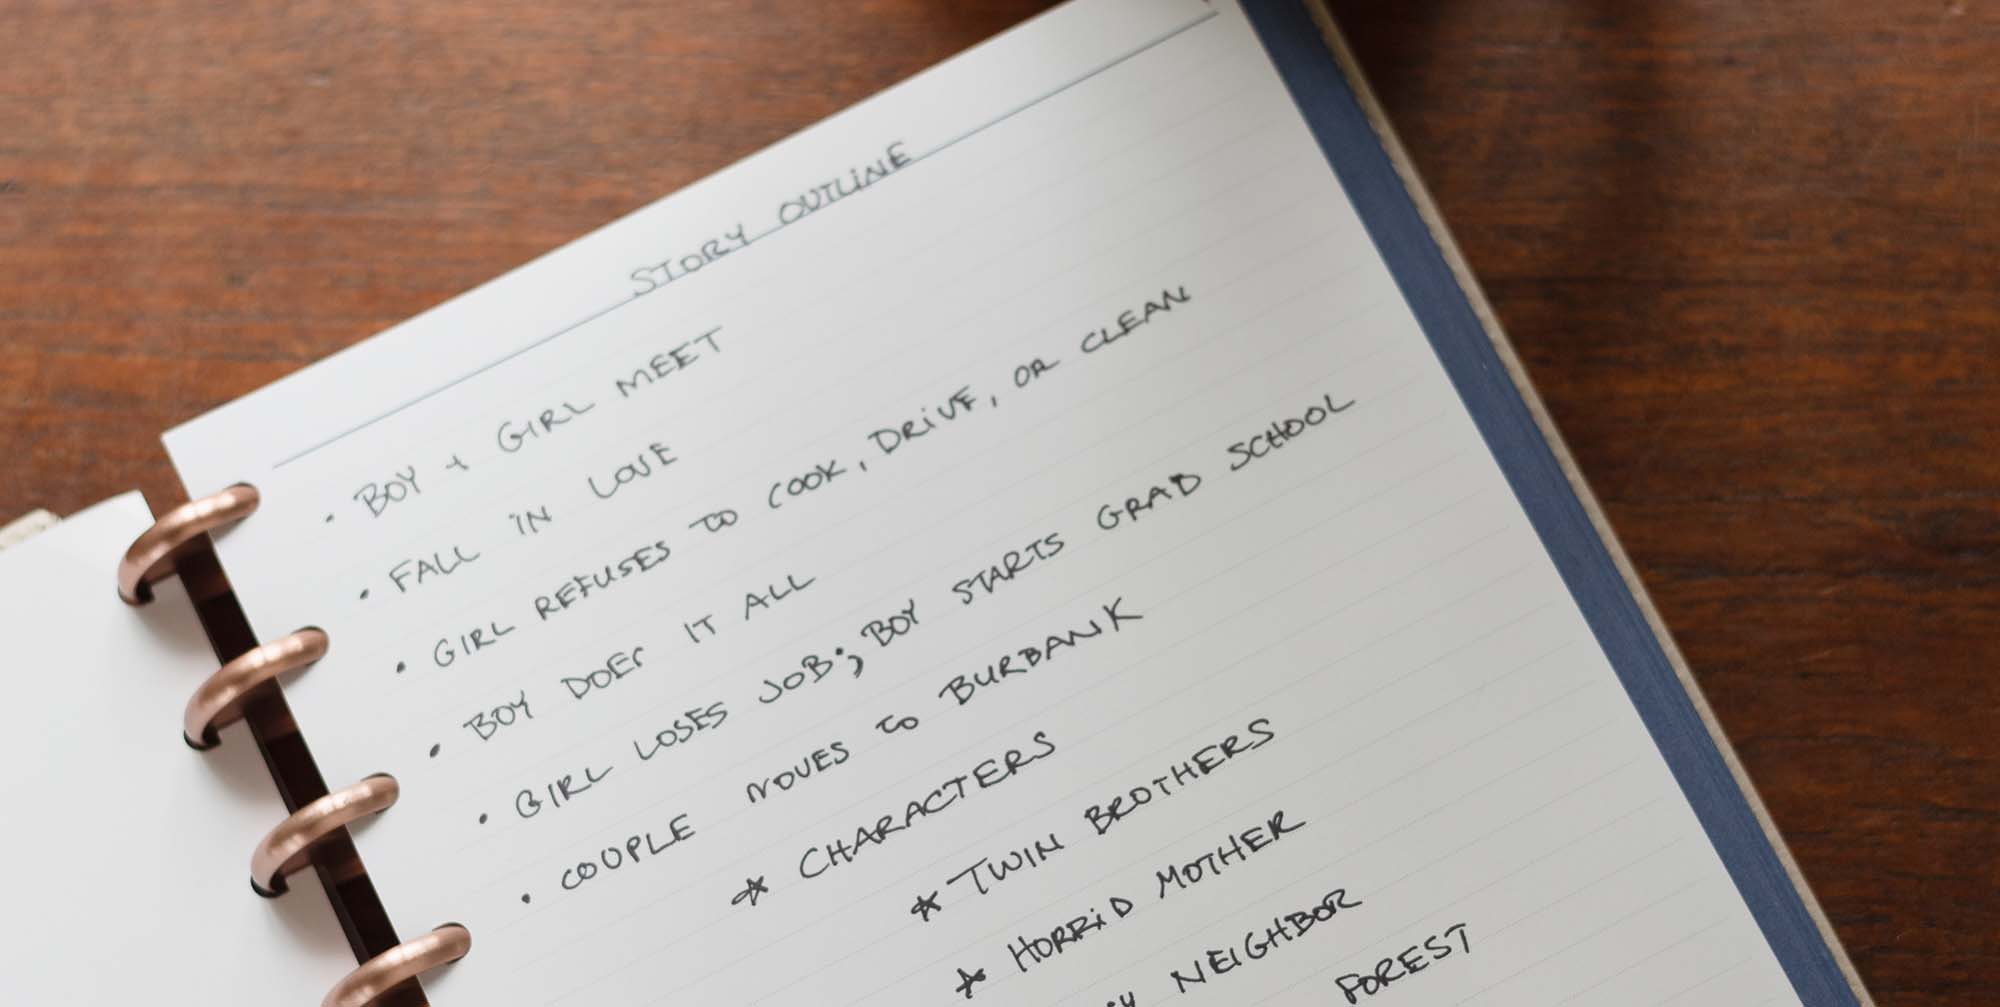 STORY OUTLINE
· BOY + GIRL MEET
· FALL IN LOVE
· GIRL REFUSES TO COOK, DRIVE, OR CLEAN
· BOY DOES IT ALL
· GIRL LOSES JOB; BOY STARTS GRAD SCHOOL
· COUPLE MOVES TO BURBANK
☆ CHARACTERS
☆ TWIN BROTHERS
☆ HORRID MOTHER
NEIGHBOR
FOREST